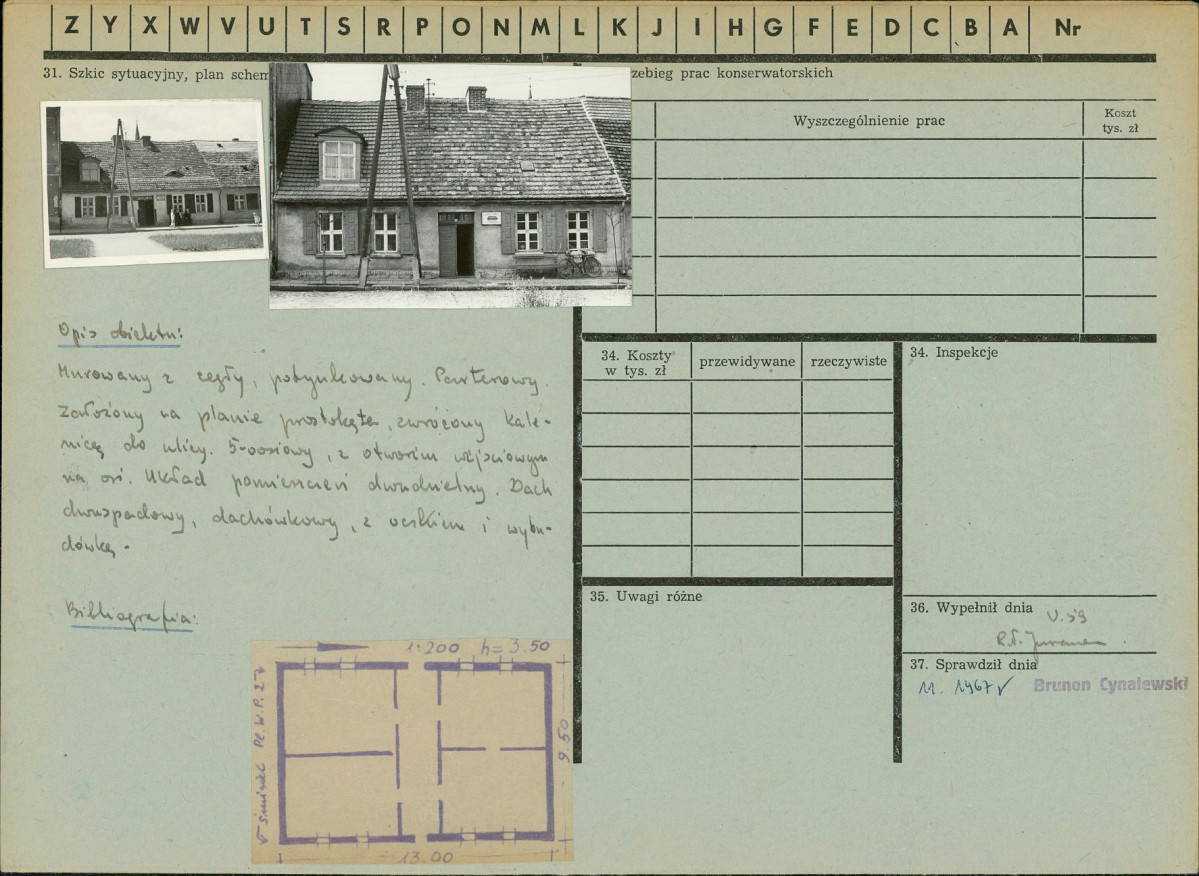 Z Y X W V U T S R P O N M L K J I H G F E D C B A Nr
31. Szkic sytuacyjny, plan schem
zebieg prac konserwatorskich
Wyszczególnienie prac
Koszt
tys. zł
Opis obiektu:
Murowany z cegły, potynkowany. Parterowy.
Założony na planie prostokąta, zwrócony kale-
nicą do ulicy. 5-osiowy, z otworem wejściowym
na osi. Układ pomieszczeń dwudzielny. Dach
dwuspadowy, dachówkowy, z oczkiem i wybu-
dówką.
Bibliografia:
34. Koszty
w tys. zł
przewidywane
rzeczywiste
34. Inspekcje
35. Uwagi różne
36. Wypełnił dnia
V.59
37. Sprawdził dnia
11. 1967 r
Brunon Cynalewski
1:200 h=3.50
PL. W.P. 2
9.50
13.00